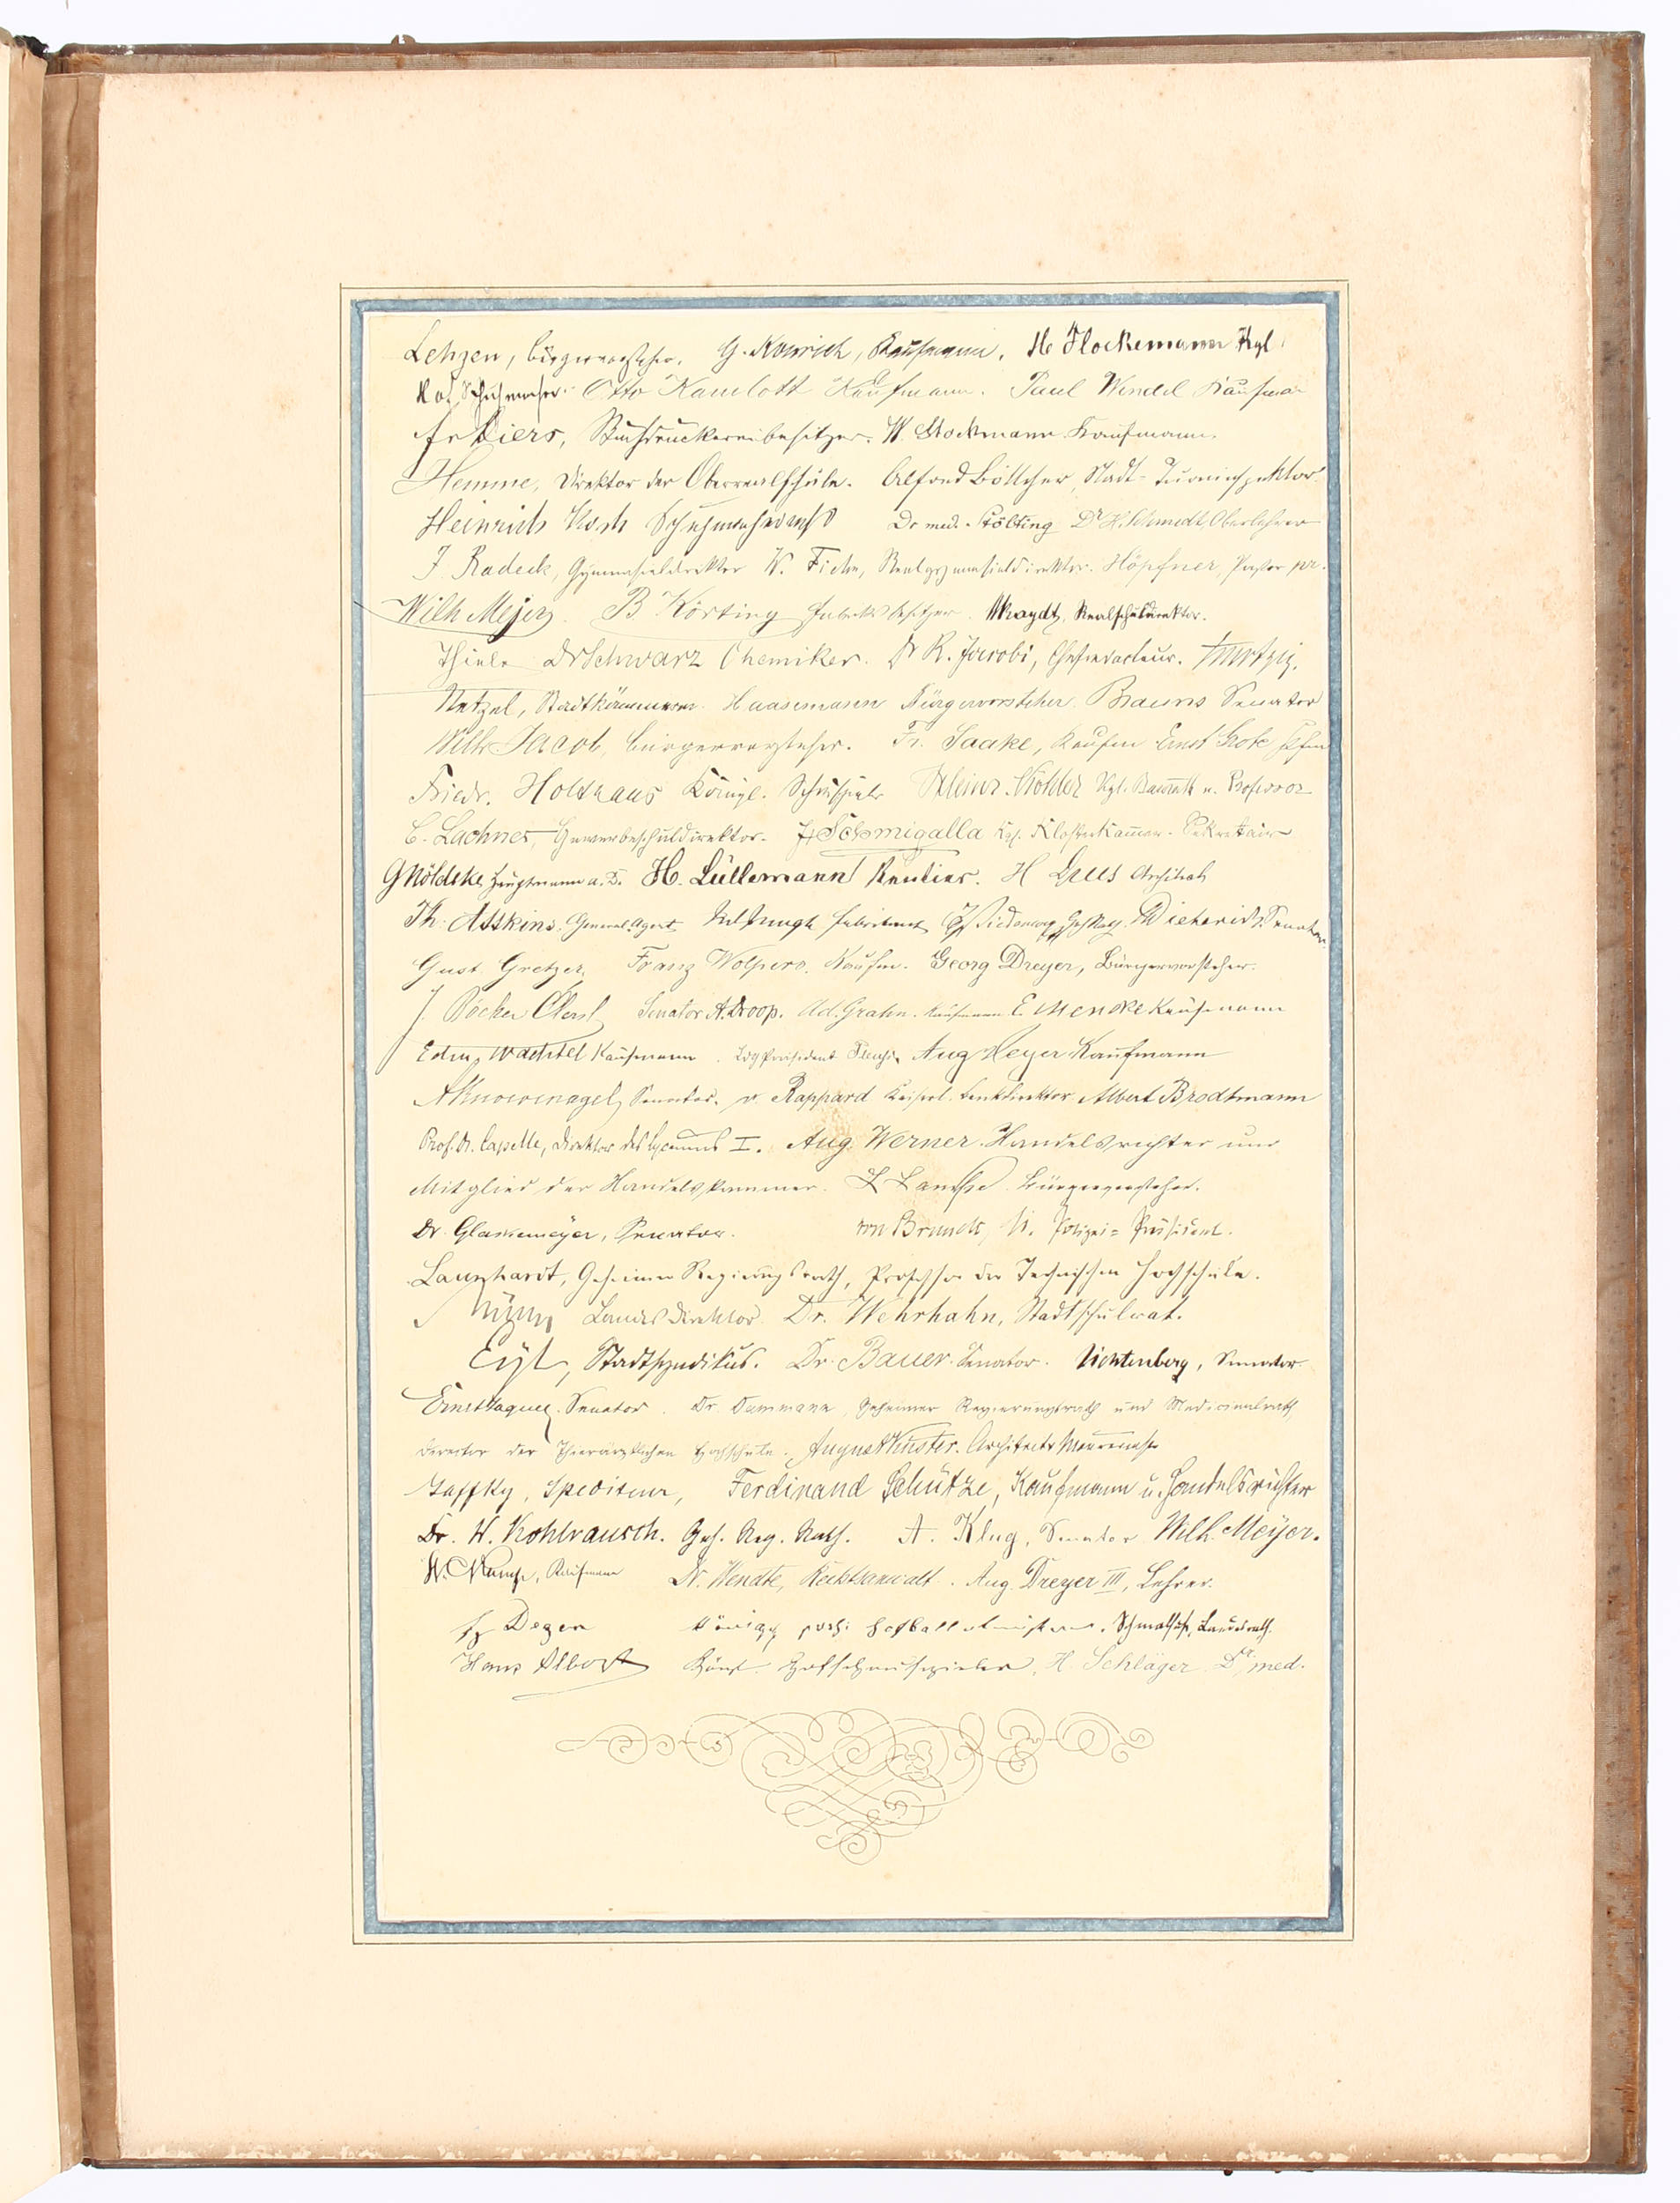 Lehzen, Bürgervorsteher. G. Konrich, Kaufmann. H. Flockemann Kgl.
Hof Schuhmacher. Otto Kamlott Kaufmann. Paul Wendel Kaufman
Fr. Ciers, Buchdruckereibesitzer. W. Stockmann Kaufmann.
Hemme, Direktor der Oberrealschule. Alfred Böttcher, Stadt-Turninspektor.
Heinrich Koch Schuhmacher Dr med. Stölting Dr H. Schmidt, Oberlehrer
J. Radeck, Gymnasialdirektor W. Fiehn, Realgymnasialdirektor. Höpfner, Pastor pr.
Wilh Mejer. B Körting Fabrikbesitzer. Maydt, Realschuldirektor.
Thiele Dr Schwarz Chemiker. Dr R. Jacobi, Chefredacteur.
Netzel, Stadtkämmerer. Haasemann Bürgervorsteher. Brauns Senator
Wilh Jacob, Bürgervorsteher. Fr. Saake, Kaufm Ernst Grote
Friedr. Holthaus Königl. Schauspieler Heinr. Köhler Kgl. Baurath u. Professor
C. Lachner, Gewerbeschuldirektor. Schmigalla Kgl. Klosterkammer-Sekretair
G Nöldeke Hauptmann a. D. H. Lüllemann Rentier. H Architekt
Th. Attkins. General Agent Fabrikant Dieterichs Senator.
Gust. Gretzer, Franz Wolpers, Kaufm. Georg Dreyer, Bürgervorsteher.
J. Böcker Oberst Senator A. Droop. Ad. Grahn. Kaufmann E Mencke Kaufmann
Edm. Wachtel Kaufmann. Präsident Aug Meyer Kaufmann
A Knoevenagel, Senator. v. Rappard Kaiserl. Bankdirektor Albert Brodtmann
Prof. Dr. Capelle, Direktor des Lyceums I. Aug. Werner Handelsrichter und
Mitglied der Handelskammer. L Lampe Bürgervorsteher.
Dr. Glasemeyer, Senator. von Brandt, K. Polizei-Präsident.
Launhardt, Geheimer Regierungsrath, Professor der Technischen Hochschule.
Landesdirektor. Dr. Wehrhahn, Stadtschulrat.
Eyl, Stadtsyndikus. Dr. Bauer. Senator. Lichtenberg, Senator
Ernst Jaques. Senator. Dr. Dammann, Geheimer Regierungsrath und Medicinalrath,
Director der Thierärztlichen Hochschule. August Küster. Architekt Maurermstr
Jaffky, Spediteur, Ferdinand Schütze, Kaufmann u. Handelsrichter
Dr. W. Kohlrausch. Geh. Reg. Rath. A. Klug, Senator Wilh. Meyer.
W. Kaufmann Dr. Wendte, Rechtsanwalt. Aug. Dreyer III, Lehrer.
Fz Degen Königl. Hofballetmeister. Landesrath.
Hans Albert Königl. Hofschauspieler, H. Schläger Dr. med.